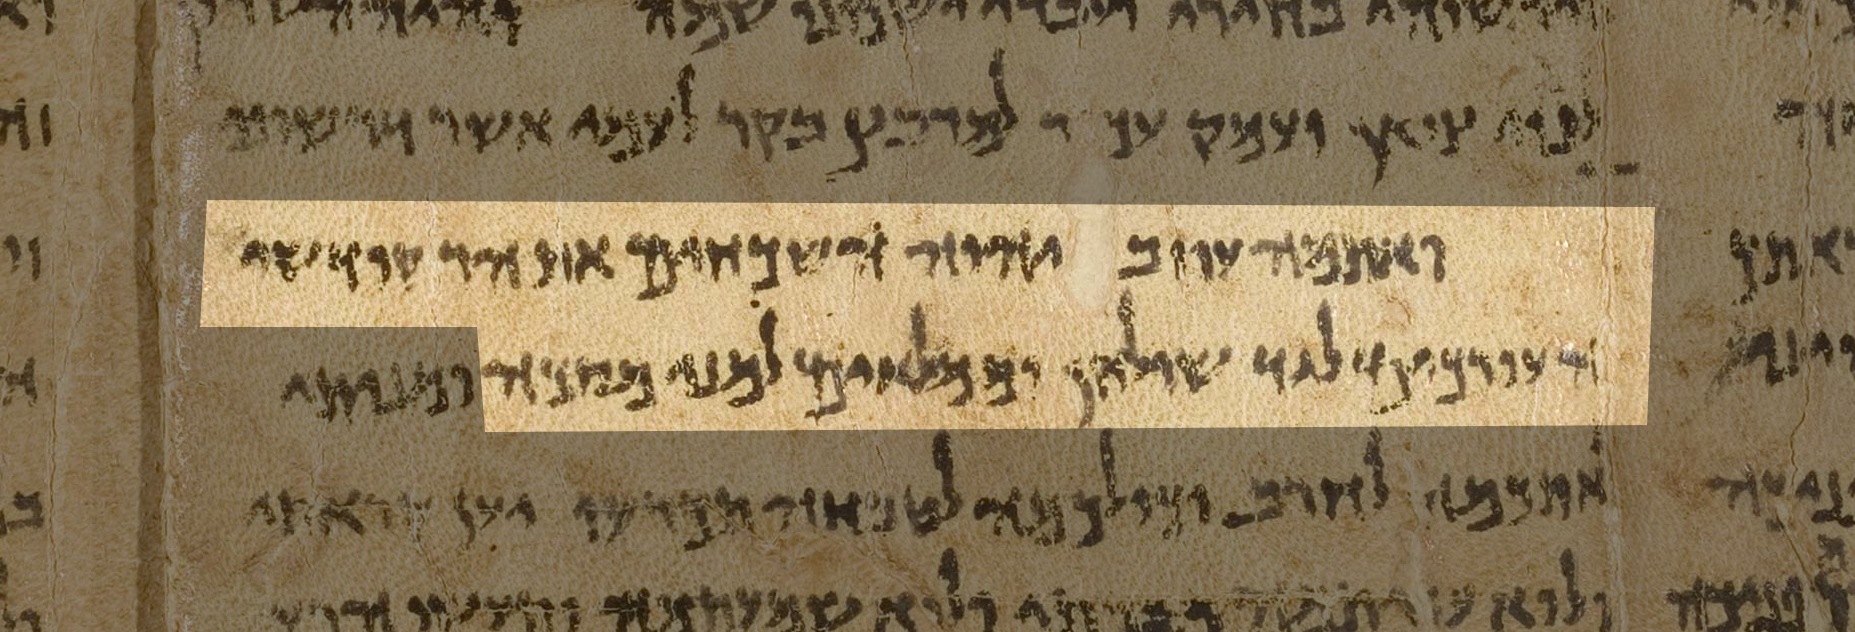 וירשוה בחירי ועבדי ישכנו שמה והיה השרון
לנוה צואן ועמק עכור למרבץ בקר לעמי אשר דרשוני
ואתמה עוזבי יהוה השכחים את הר קודשי
העורכים לגד שולחן והממלאים למני ממסך ומניתי
אתכמה לחרב וכולכמה לטבח תכרעו יען קראתי
ולוא עניתמה דברתי ולוא שמעתמה ותעשו הרע